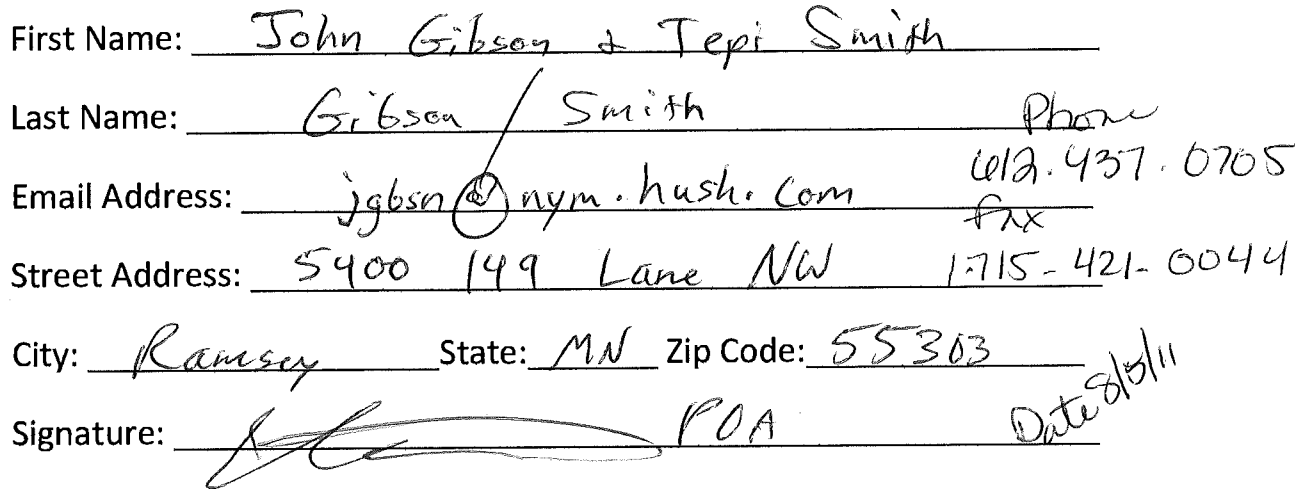 First Name: John Gibson & Tepi Smith
Last Name: Gibson / Smith
Phone
612.437.0705
Email Address: jgbsn@nym.hush.com
fax
Street Address: 5400 149 Lane NW 1-715-421-0044
City: Ramsey State: MN Zip Code: 55303
Date 8/5/11
Signature: POA